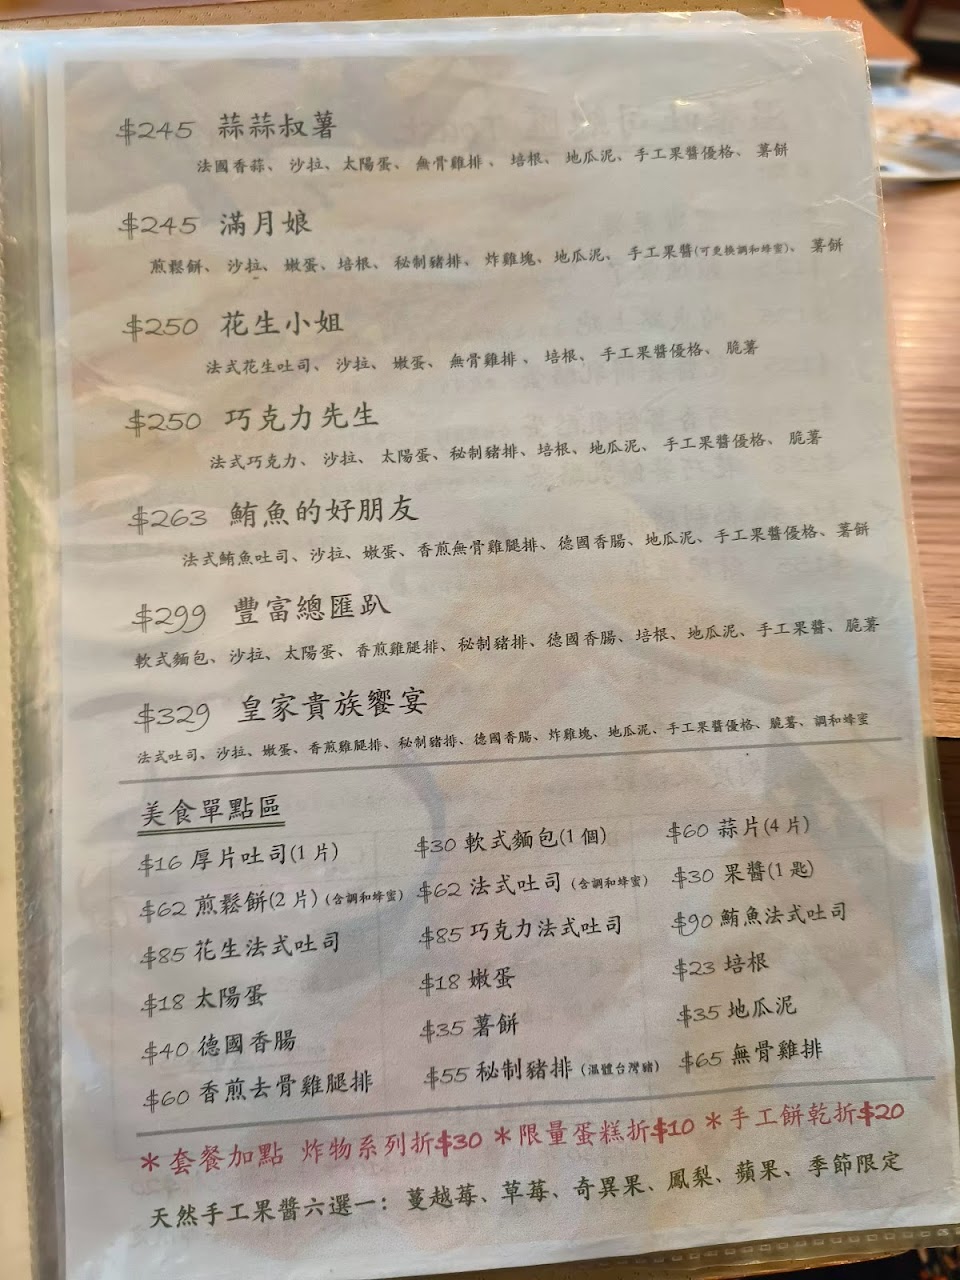 $245 蒜蒜叔薯
法國香蒜、沙拉、太陽蛋、無骨雞排、培根、地瓜泥、手工果醬優格、薯餅
$245 滿月娘
煎鬆餅、沙拉、嫩蛋、培根、秘制豬排、炸雞塊、地瓜泥、手工果醬(可更換調和蜂蜜)、薯餅
$250 花生小姐
法式花生吐司、沙拉、嫩蛋、無骨雞排、培根、手工果醬優格、脆薯
$250 巧克力先生
法式巧克力、沙拉、太陽蛋、秘制豬排、培根、地瓜泥、手工果醬優格、脆薯
$263 鮪魚的好朋友
法式鮪魚吐司、沙拉、嫩蛋、香煎無骨雞腿排、德國香腸、地瓜泥、手工果醬優格、薯餅
$299 豐富總匯趴
軟式麵包、沙拉、太陽蛋、香煎雞腿排、秘制豬排、德國香腸、培根、地瓜泥、手工果醬、脆薯
$329 皇家貴族饗宴
法式吐司、沙拉、嫩蛋、香煎雞腿排、秘制豬排、德國香腸、炸雞塊、地瓜泥、手工果醬優格、脆薯、調和蜂蜜
美食單點區
$16 厚片吐司(1 片) $30 軟式麵包(1 個) $60 蒜片(4 片)
$62 煎鬆餅(2 片)(含調和蜂蜜) $62 法式吐司(含調和蜂蜜) $30 果醬(1 匙)
$85 花生法式吐司 $85 巧克力法式吐司 $90 鮪魚法式吐司
$18 太陽蛋 $18 嫩蛋 $23 培根
$40 德國香腸 $35 薯餅 $35 地瓜泥
$60 香煎去骨雞腿排 $55 秘制豬排(溫體台灣豬) $65 無骨雞排
＊套餐加點 炸物系列折$30 ＊限量蛋糕折$10 ＊手工餅乾折$20
天然手工果醬六選一：蔓越莓、草莓、奇異果、鳳梨、蘋果、季節限定